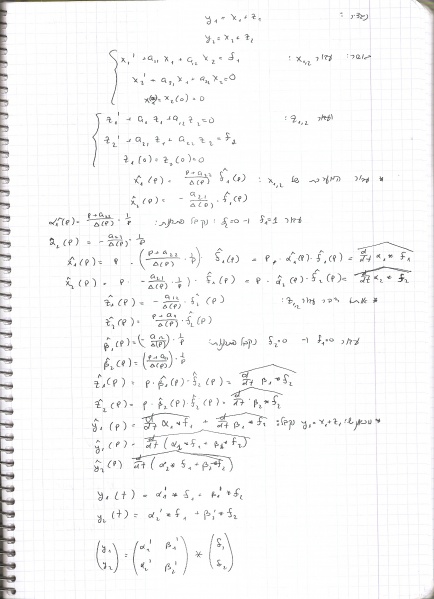 y₁ = x₁ + z₁
y₂ = x₂ + z₂
x₁' + a₁₁ x₁ + a₁₂ x₂ = f₁
x₂' + a₂₁ x₁ + a₂₂ x₂ = 0
x₁(0) = x₂(0) = 0
z₁' + a₁₁ z₁ + a₁₂ z₂ = 0
z₂' + a₂₁ z₁ + a₂₂ z₂ = f₂
z₁(0) = z₂(0) = 0
x̂₁(p) = (p + a₂₂)/Δ(p) · f̂₁(p)
x̂₂(p) = - a₂₁/Δ(p) · f̂₁(p)
α̂₁(p) = (p + a₂₂)/Δ(p) · 1/p f₂=0 -ו f₁=1
α̂₂(p) = - a₂₁/Δ(p) · 1/p
x̂₁(p) = p · ((p + a₂₂)/Δ(p) · 1/p) · f̂₁(p) = p · α̂₁(p) · f̂₁(p) = d/dt α₁ * f₁
x̂₂(p) = p · (- a₂₁/Δ(p) · 1/p) · f̂₂(p) = p · α̂₂(p) · f̂₂(p) = d/dt α₂ * f₂
ẑ₁(p) = - a₁₂/Δ(p) · f̂₂(p)
ẑ₂(p) = (p + a₁₁)/Δ(p) · f̂₂(p)
β̂₁(p) = (- a₁₂/Δ(p)) · 1/p f₂=0 -ו f₁=0
β̂₂(p) = ((p + a₁₁)/Δ(p)) · 1/p
ẑ₁(p) = p · β̂₁(p) · f̂₂(p) = d/dt β₁ * f₂
ẑ₂(p) = p · β̂₂(p) · f̂₂(p) = d/dt β₂ * f₂
ŷ₁(p) = d/dt α₁ * f₁ + d/dt β₁ * f₁ :נקבל y₁ = x₁ + z₁
ŷ₁(p) = d/dt (α₁ * f₁ + β₁ * f₂)
ŷ₂(p) d/dt (α₂ * f₁ + β₂ * f₂)
y₁(t) = α₁' * f₁ + β₁' * f₂
y₂(t) = α₂' * f₁ + β₂' * f₂
(y₁ y₂) = (α₁' β₁' α₂' β₂') * (f₁ f₂)